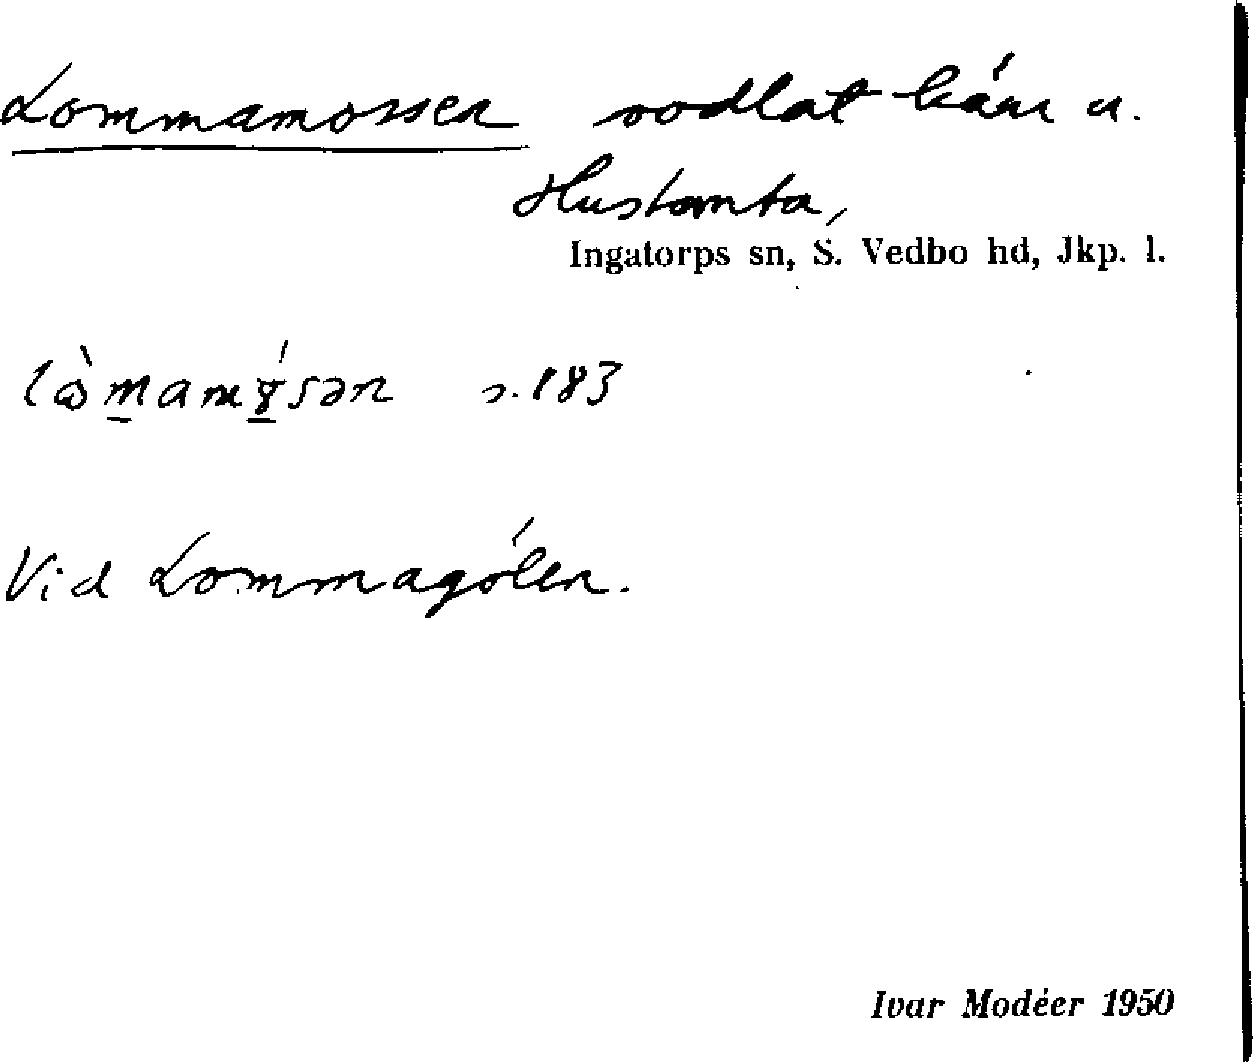 Lommamossen oodlat kärr u.
Hustomta,
Ingatorps sn, S. Vedbo hd, Jkp. l.
s. 183
Vid Lommagölen.
Ivar Modéer 1950